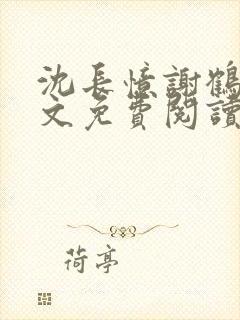 沈長憶謝鶴
文免費閱讀
荷亭